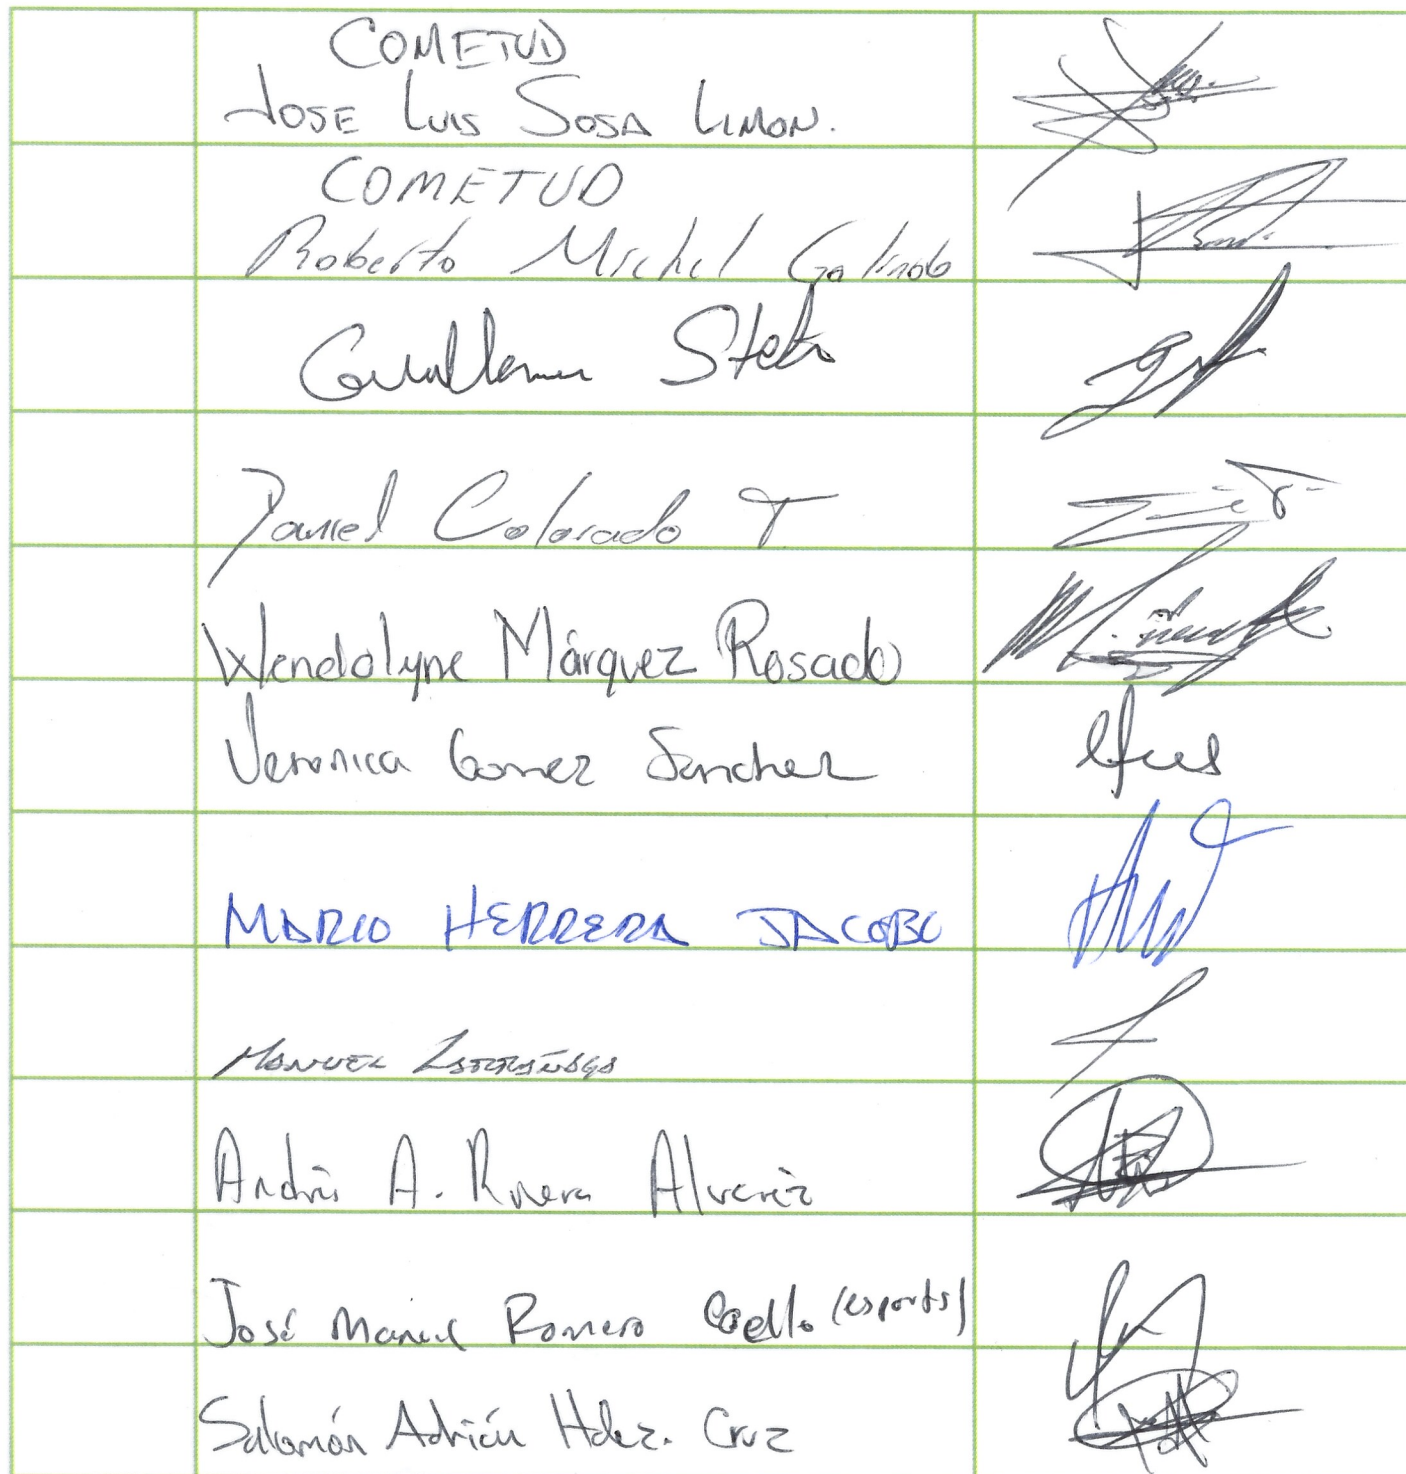 COMETUD
JOSE LUIS SOSA LIMON.
COMETUD
Roberto Michel Galindo
Guillermo
Daniel Colorado T
Wendolyne Márquez Rosado
Veronica Gomez Sanchez
MARIO HERRERA JACOBO
MANUEL LARRAÑAGA
Andrés A. Rivera Alvarez
José Manuel Romero Coello (esports)
Salomón Adrián Hdez. Cruz